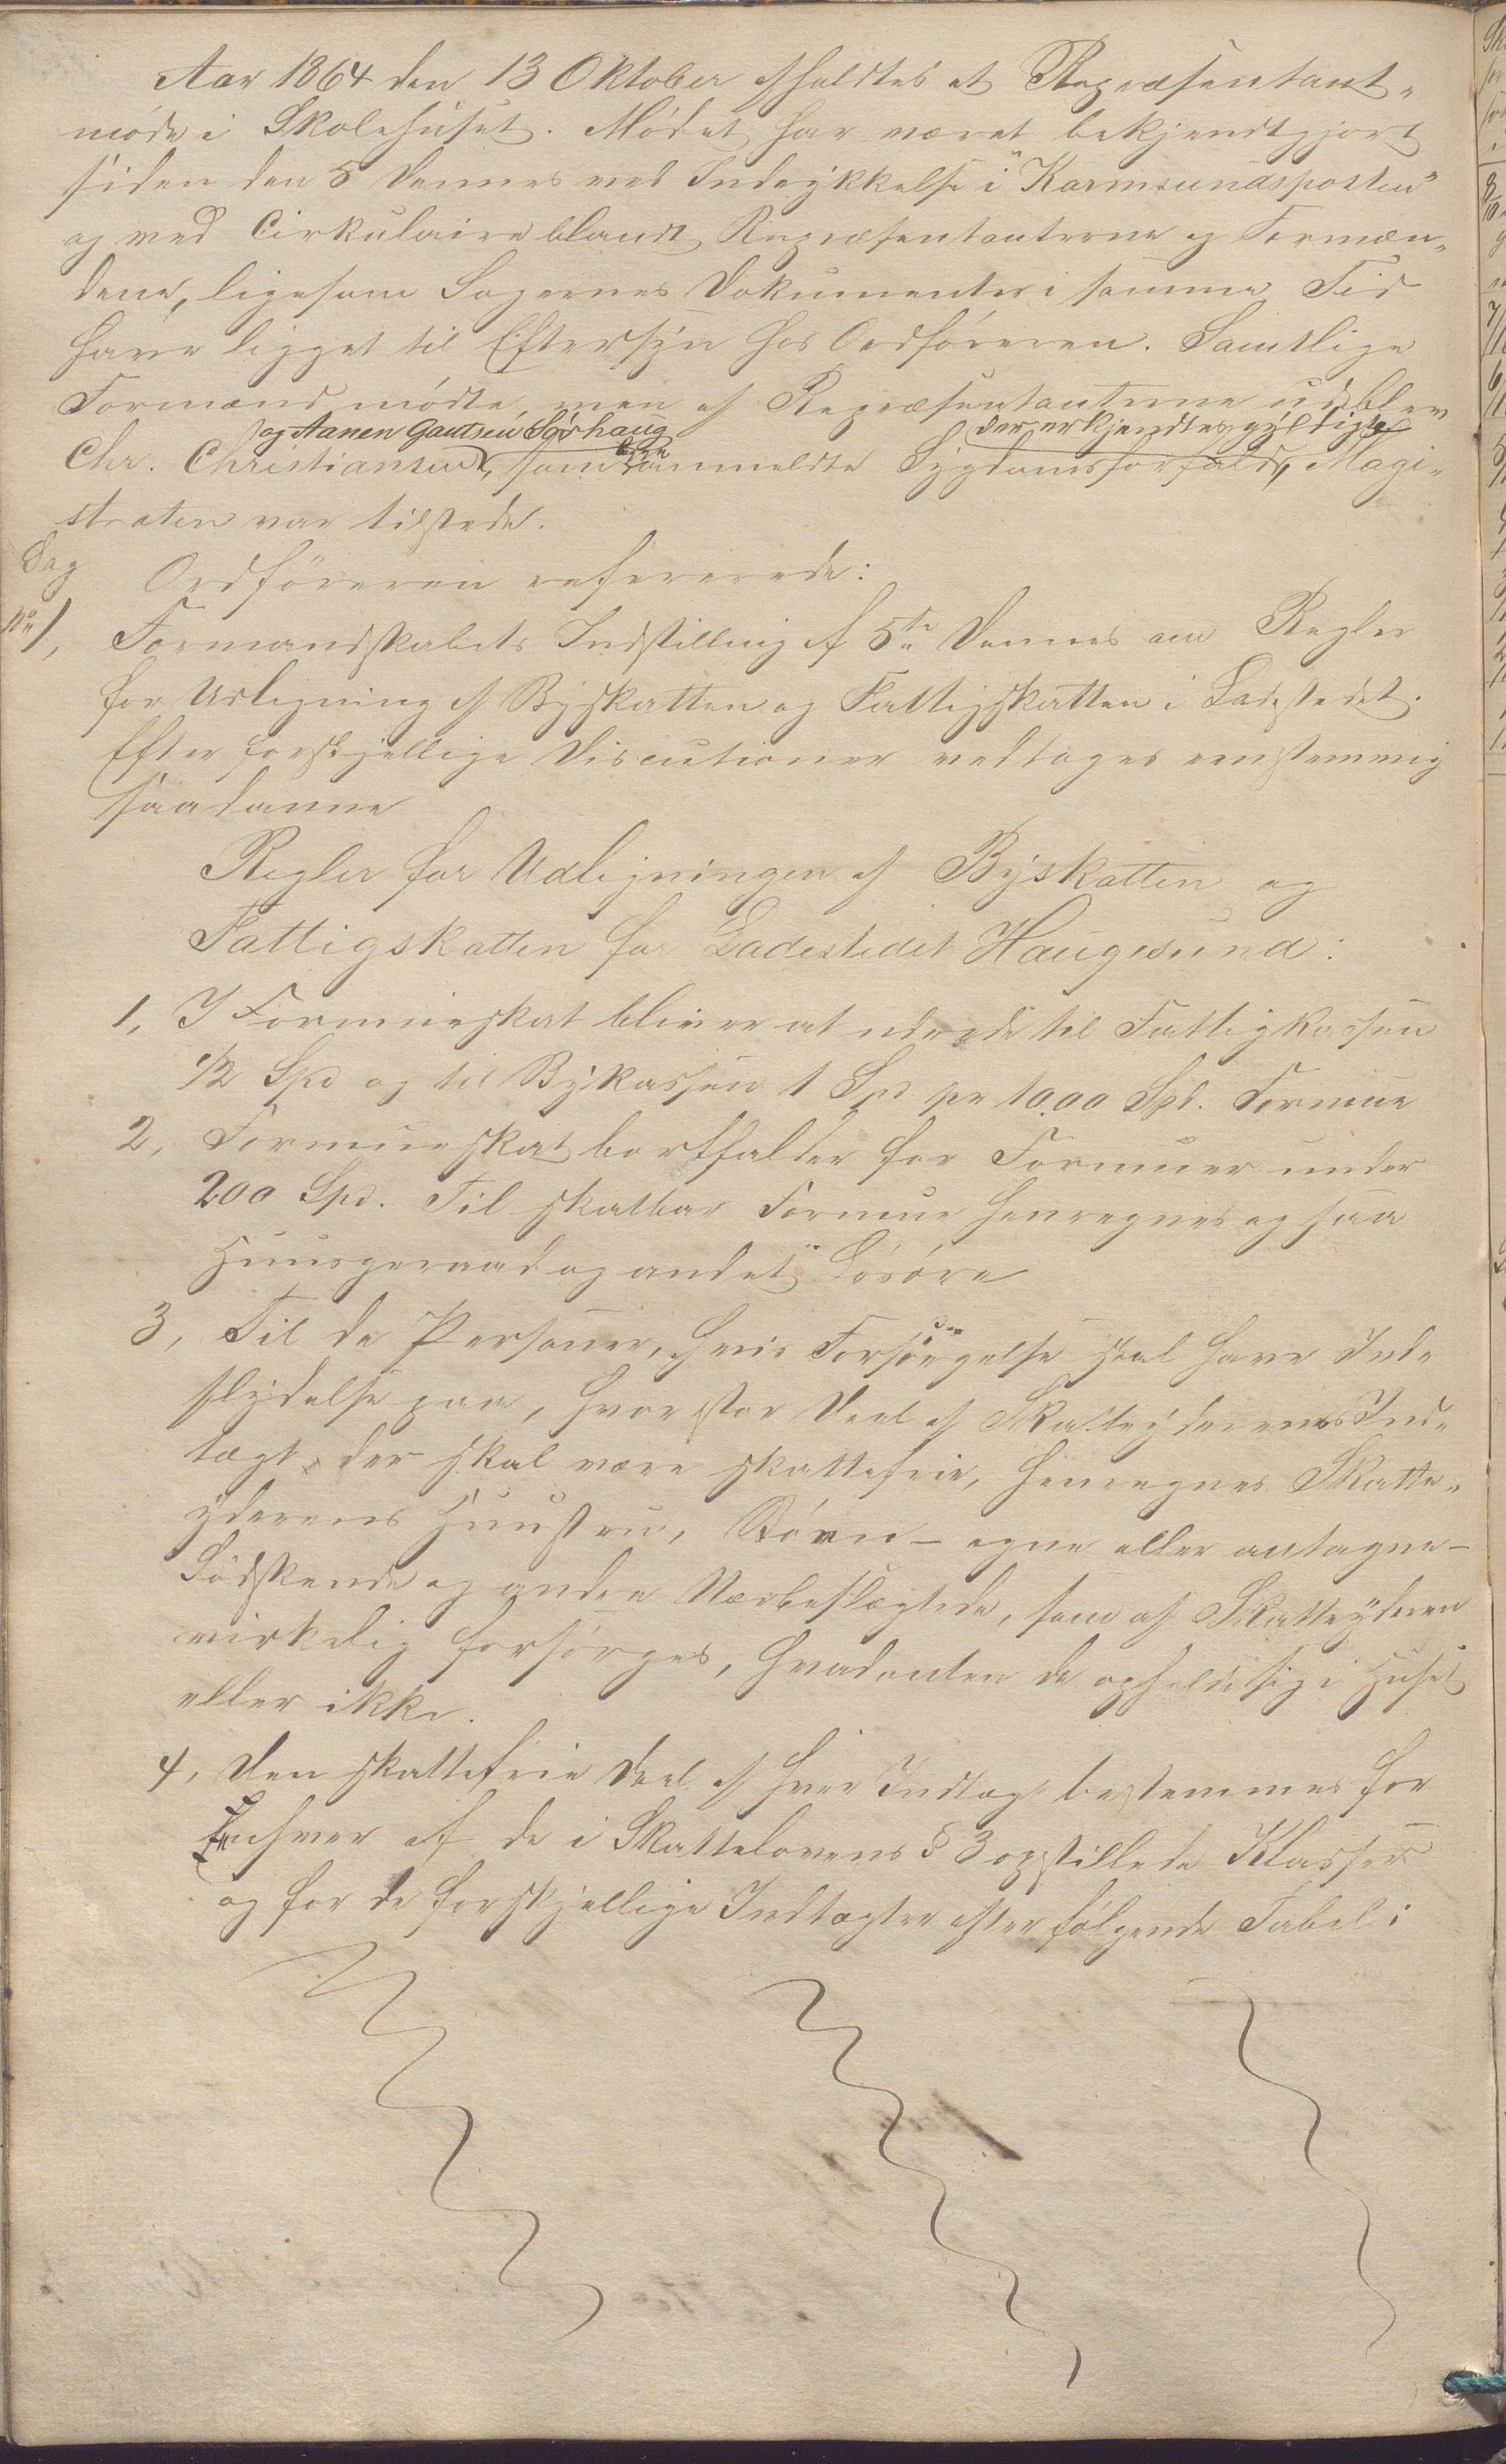 Aar 1864 den 13 Oktober afholdtes et Repræsentant-
møde i Skolehuset. Mødet har været bekjendtgjort
siden den 5 dennes ved Indrykkelse i "Karmsundsposten"
og ved Cirkulaire blandt Repræsentanterne og Formæn-
dene, ligesom Sagernes Dokumenter i samme Tid
have ligget til Eftersyn hos Ordføreren. Samtlige
Formænd mødte, men af Repræsentanterne udeblev
og Aanen Gautsen Sørhaug der erkjendtes gyldigt
Chr. Christiansen, som anmeldte Sygdomsforfald, Magi-
straten var tilstede.
Sag Ordføreren refererede:
No 1, Formandskabets Indstilling af 5te dennes om Regler
for Udligning af Byskatten og Fattigskatten i Ladestedet.
Efter forskjellige Discutioner vedtoges eenstemmig
saadanne
Regler for Udligningen af Byskatten og
Fattigskatten for Ladestedet Haugesund:
1, I Formueskat bliver at udrede til Fattigkassen
1/2 Spd og til Bykassen 1 Spd pr 1000 Spd. Formue
2, Formueskat bortfalder for Formuer under
200 Spd. Til skatbar Formue henregnes og saa
Huusgeraad og andet Løsøre
3, Til de Personer, hvis Forsørgelse skal have Ind-
flydelse paa, hvor stor Deel af Skatteyderens Ind-
tægt der skal være skattefrie, henregnes Skatte-
yderens Huustru, Børn - egne eller antagne -
Sødskende og andre Nærbeslægtede, som af Skatteyderen
virkelig forsørges, hvadenten de opholde sig i Huset
eller ikke.
4, Den skattefrie Deel af hver Indtægt bestemmes for
Enhver af de i Skattelovens § 3 opstillede Klasser
og for de forskjellige Indtægter efter følgende Tabel: